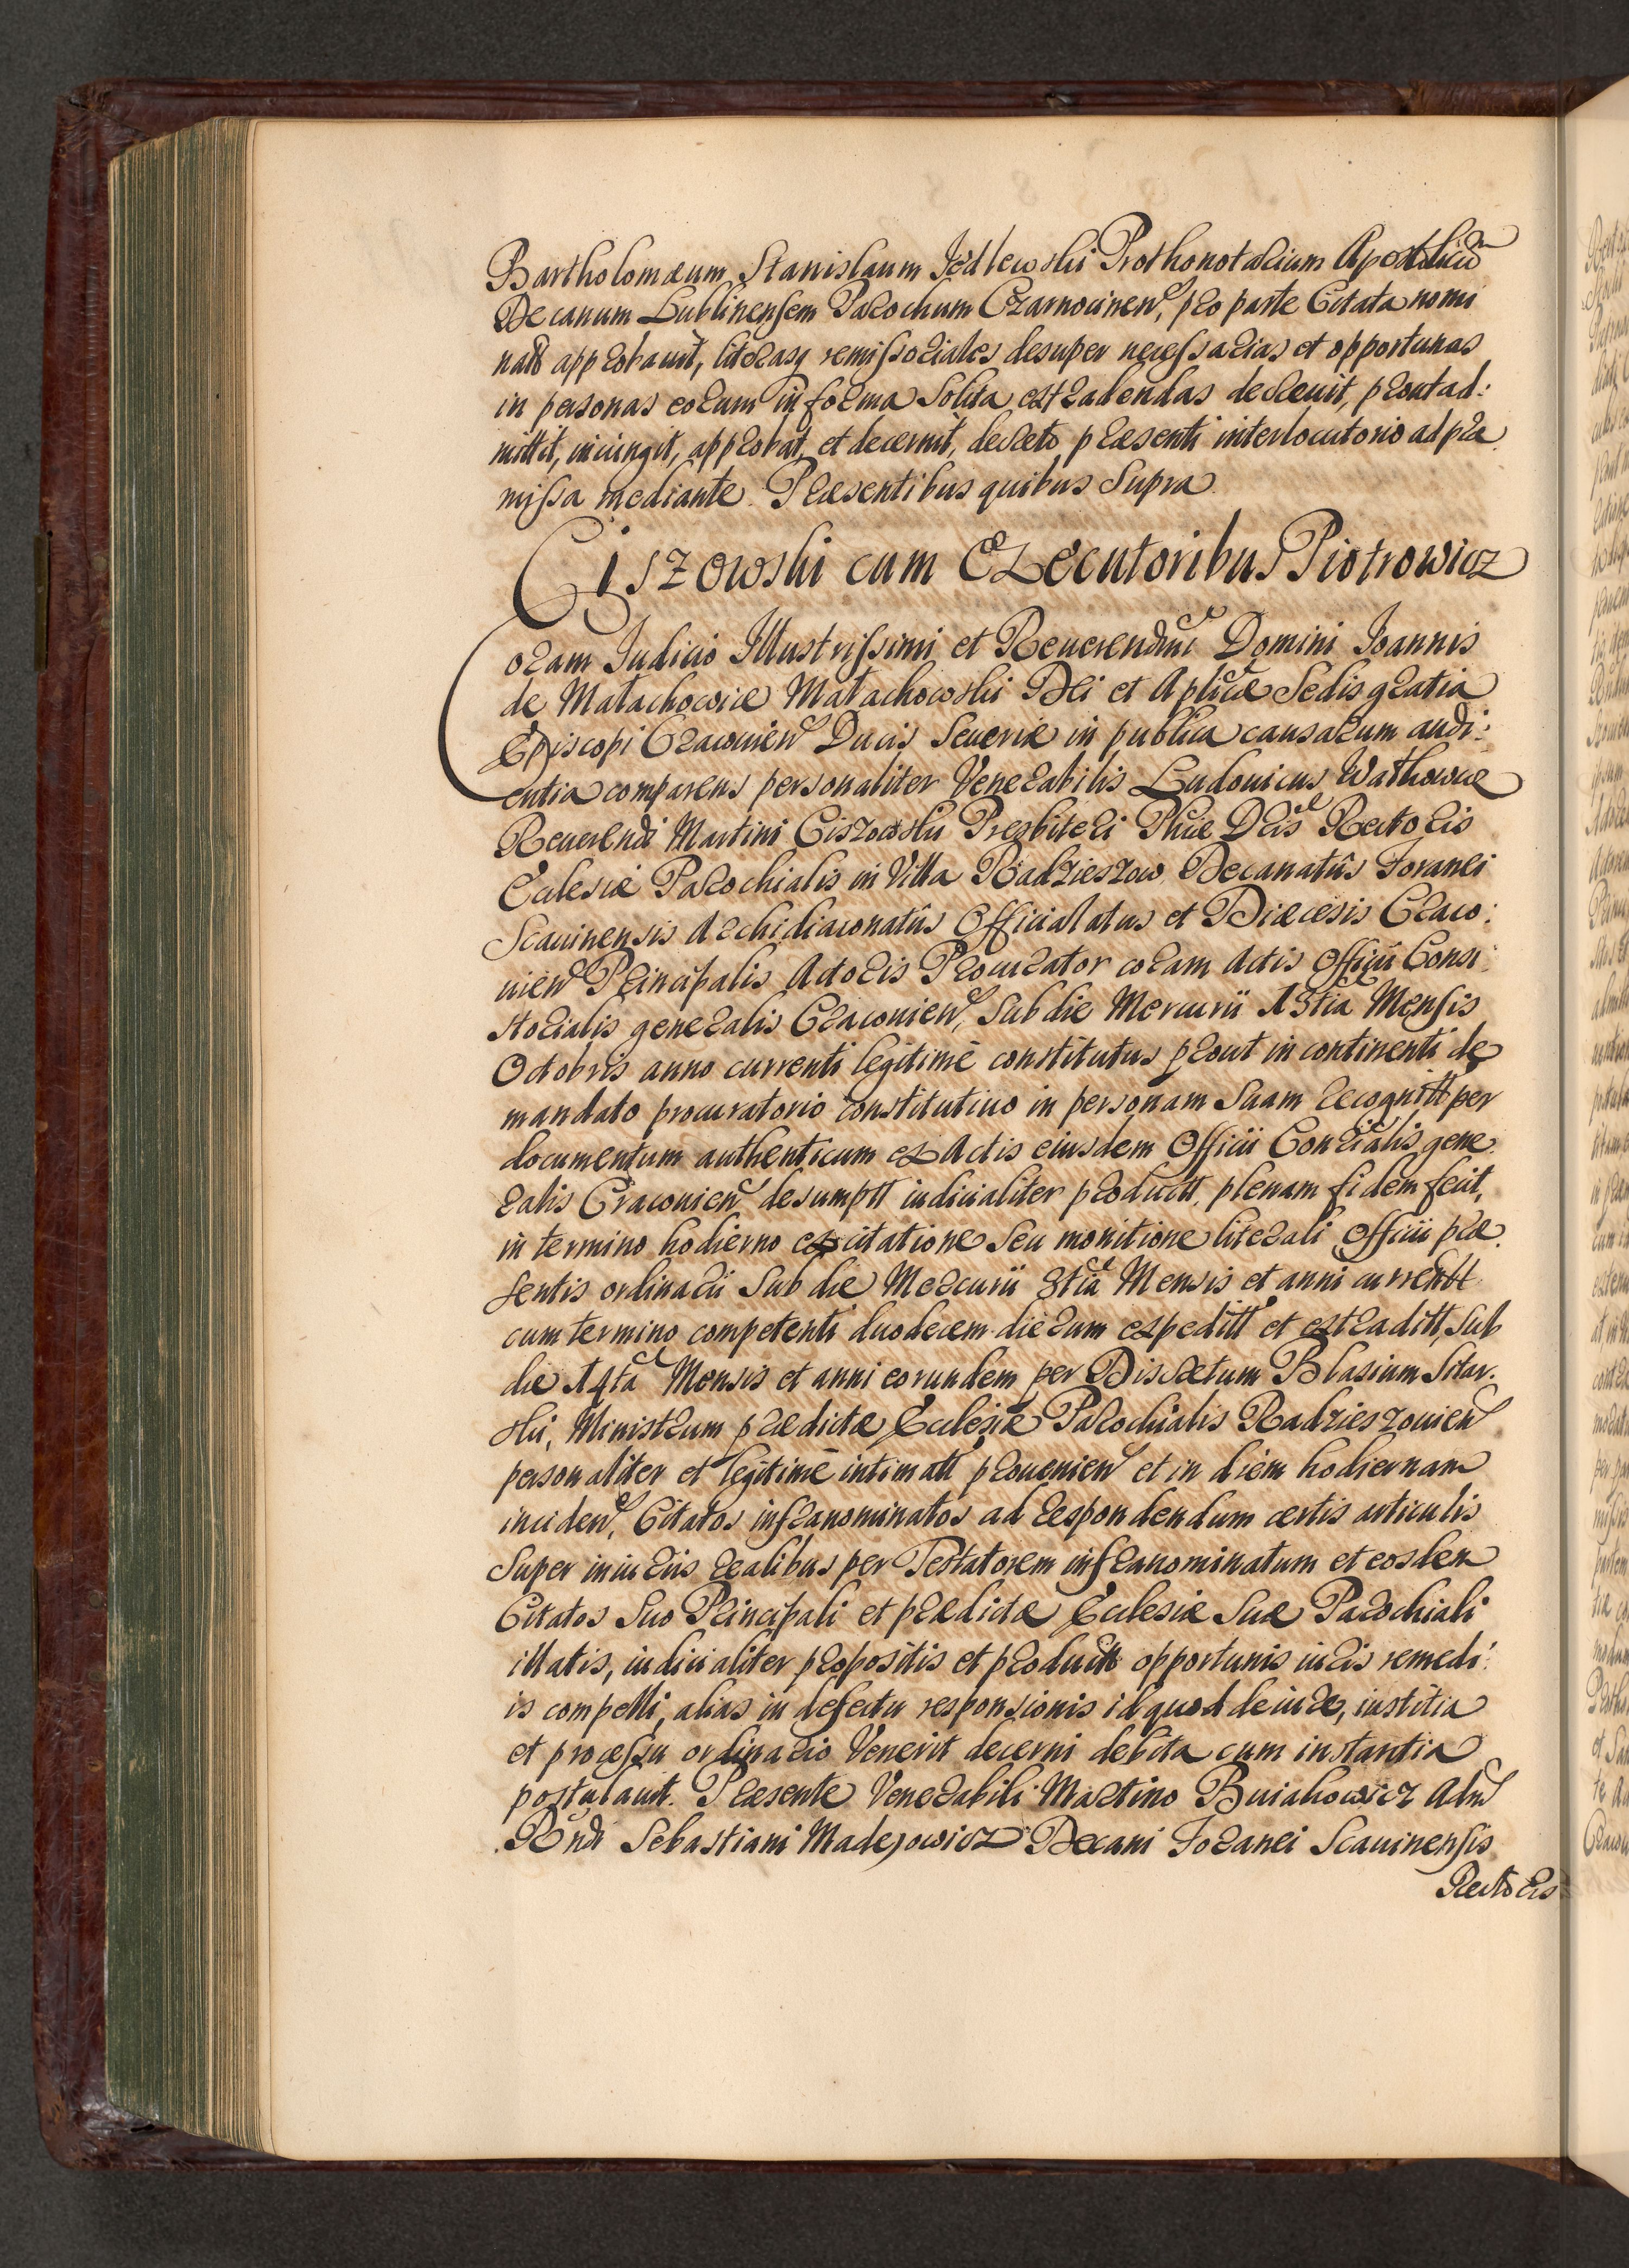 Bartholomæum Stanislaum Jedlewski Prothonotarium Apostlicũ
Decanum Lublinensem Parochum Czarnocinen, pro parte Citata nomi
natt approbauit, literasq remissoriales desuper necessarias et opportunas
in personas eorum in forma Solita extradendas decreuit, prout ad:
mittit, iniungit, approbat, et decernit, decreto præsenti interlocutorio ad præ
missa mediante. Præsentibus quibus Supra
Ciszowski cum Executoribus Piotrowicz
Coram Judicio Illustrissimi et Reuerendmi Domini Joannis
de Małachowice Małachowski Dei et Aplicæ Sedis gratia
Episcopi Cracouien Ducis Seueriæ in publica causarum audi:
entia comparens personaliter Venerabilis Ludouicus Wathowicz
Reuerendi Martini Ciszowski Presbiteri Phiæ Dris Rectoris
Ecclesiæ Parochialis in Villa Radzieszow Decanatûs Foranei
Scauinensis Archidiaconatûs Officialatus et Diæcesis Craco:
uien Principalis Actoris Procurator coram Actis Officii Consi
storialis generalis Cracouien, Sub die Mercurii 13tia Mensis
Octobris anno currenti legitimè constitutus prout in continenti de
mandato procuratorio constitutiuo in personam Suam recognitt per
documentum authenticum ex Actis eiusdem Officii Conrialis gene
ralis Cracouien desumptt iudicialiter productt, plenam fidem fecit,
in termino hodierno ex citatione Seu monitione literali Officii præ
sentis ordinarii Sub die Mercurii 3tia Mensis et anni currentt
cum termino competenti duodecem dierum expeditt et extraditt, Sub
die 14ta Mensis et anni eorundem per Discretum Blasium Sitar.
ski, Ministrum prædictæ Ecclesiæ Parochialis Radzieszouien
personaliter et legitimè intimatt prouenien et in diem hodiernam
inciden, Citatos infranominatos ad respondendum certis articulis
Super iniuriis realibus per Testatorem infranominatum et eosdem
Citatos Suo Principali et prædictæ Ecclesiæ Suæ Parochiali
illatis, iudicialiter propositis et productt opportunis iuris remedi:
is compelli, alias in defectu responsionis id quod de iure, iustitia
et processu ordinario Venerit decerni debita cum instantia
postulauit. Præsente Venerabili Martino Buiakowicz Adm
Rndi Sebastiani Madejowicz Decani Foranei Scauinensis
Rectoris